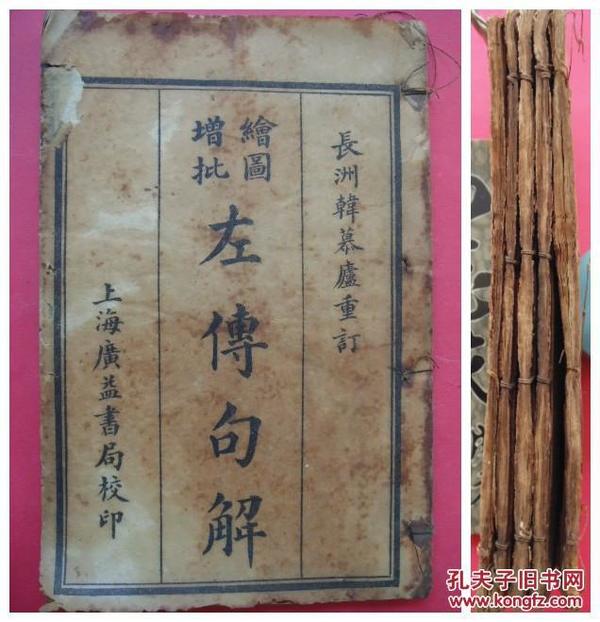 長洲韓慕廬重訂
繪圖
增批
左傳句解
上海廣益書局校印
孔夫子旧书网
www.kongfz.com